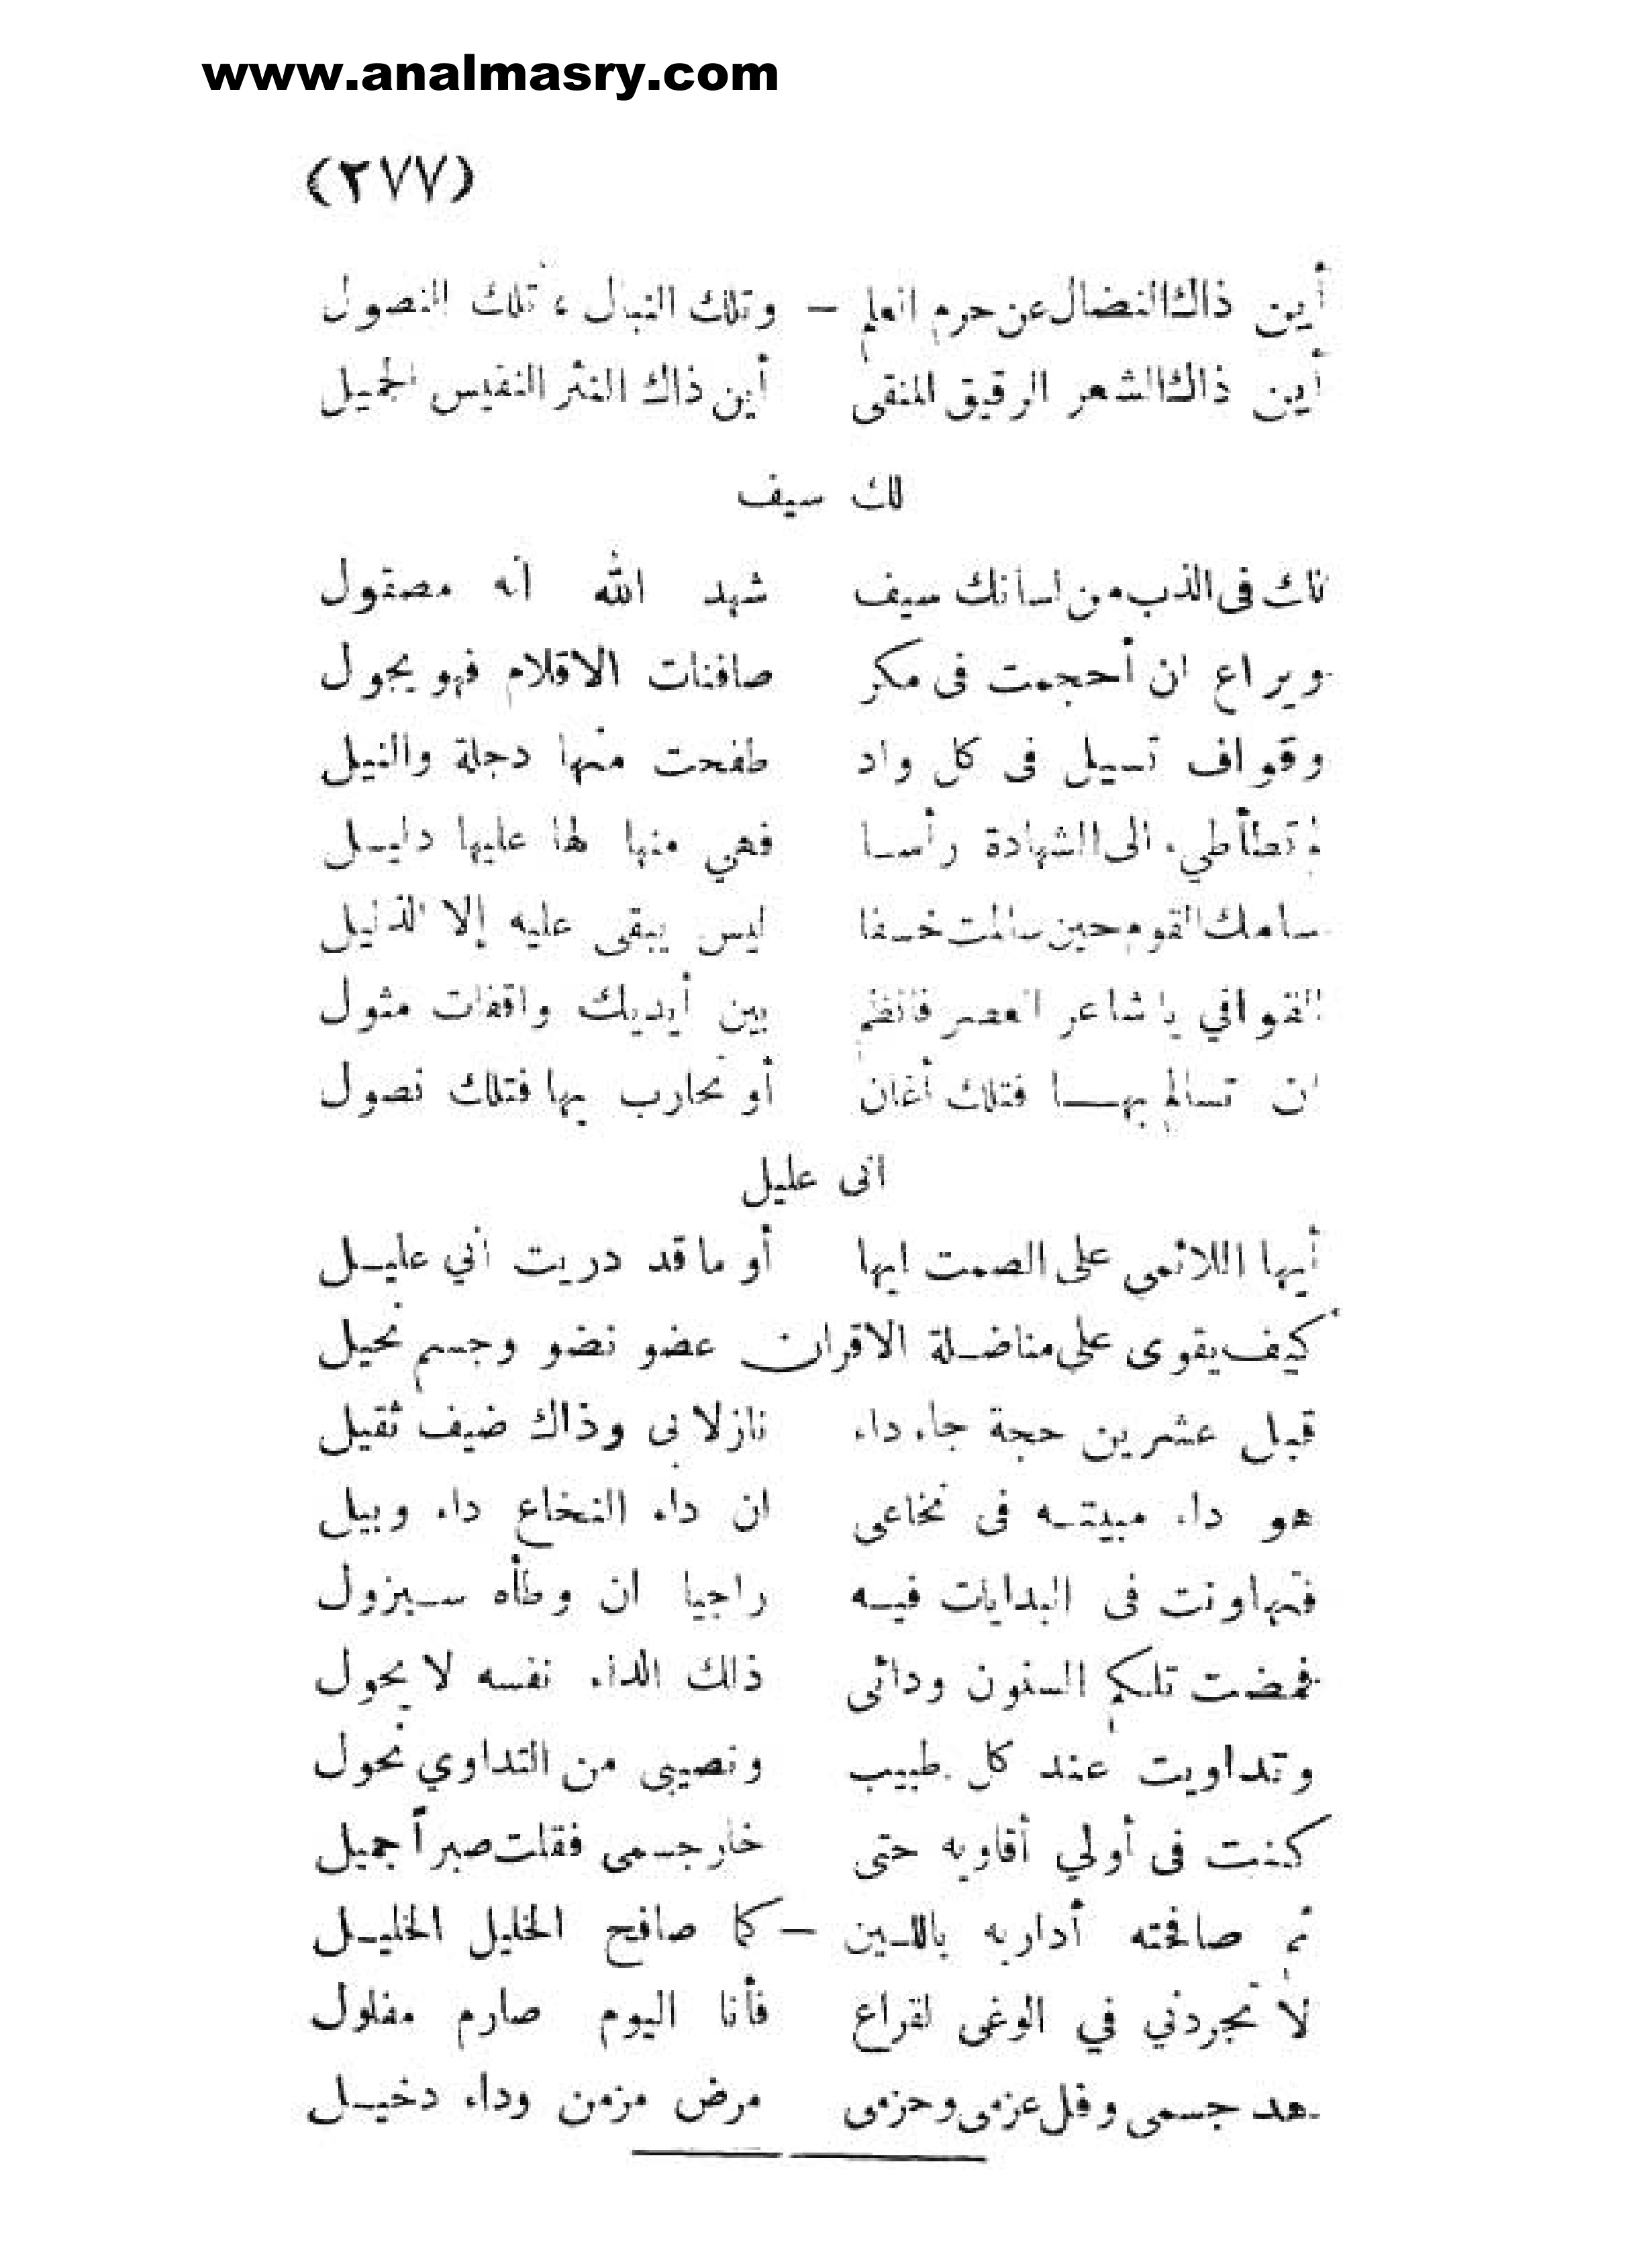 www.analmasry.com
(٢٧٧)
أين ذاك النضال عن حرم العلم – وتلك النبال ، تلك النصول
أين ذاك الشعر الرقيق المنقى أين ذاك النثر النفيس الجميل
لك سيف
لك فى الذب من لسانك سيف شهد الله أنه مصقول
ويراع ان أحجمت فى مكر صافنات الاقلام فهو يجول
وقواف تسيل فى كل واد طفحت منها دجلة والنيل
لم تطأطيء الى الشهادة رأسا فهي منها لها عليها دليل
سامك القوم حين سالمت خسفا ليس يبقى عليه إلا الذليل
القوافي يا شاعر العصر فانظم بين أيديك واقفات مثول
ان تسالم بها فتلك أغان أو تحارب بها فتلك نصول
انى عليل
أيها اللائمى على الصمت ايها أو ما قد دريت أني عليل
كيف يقوى على مناضلة الاقران عضو نضو وجسم نحيل
قبل عشرين حجة جاء داء نازلا بى وذاك ضيف ثقيل
هو داء مبيته فى نخاعى ان داء النخاع داء وبيل
فتهاونت فى البدايات فيه راجيا ان وطأه سيزول
فمضت تلكم السنون ودائى ذلك الداء نفسه لا يحول
وتداويت عند كل طبيب ونصيبى من التداوي نحول
كنت فى أولي أقاويه حتى خار جسمى فقلت صبراً جميل
ثم صافحته أداريه باللين – كما صافح الخليل الخليل
لا تجردني في الوغى لقراع فأنا اليوم صارم مفلول
هد جسمى وفل عزمى وحزمى مرض مزمن وداء دخيل